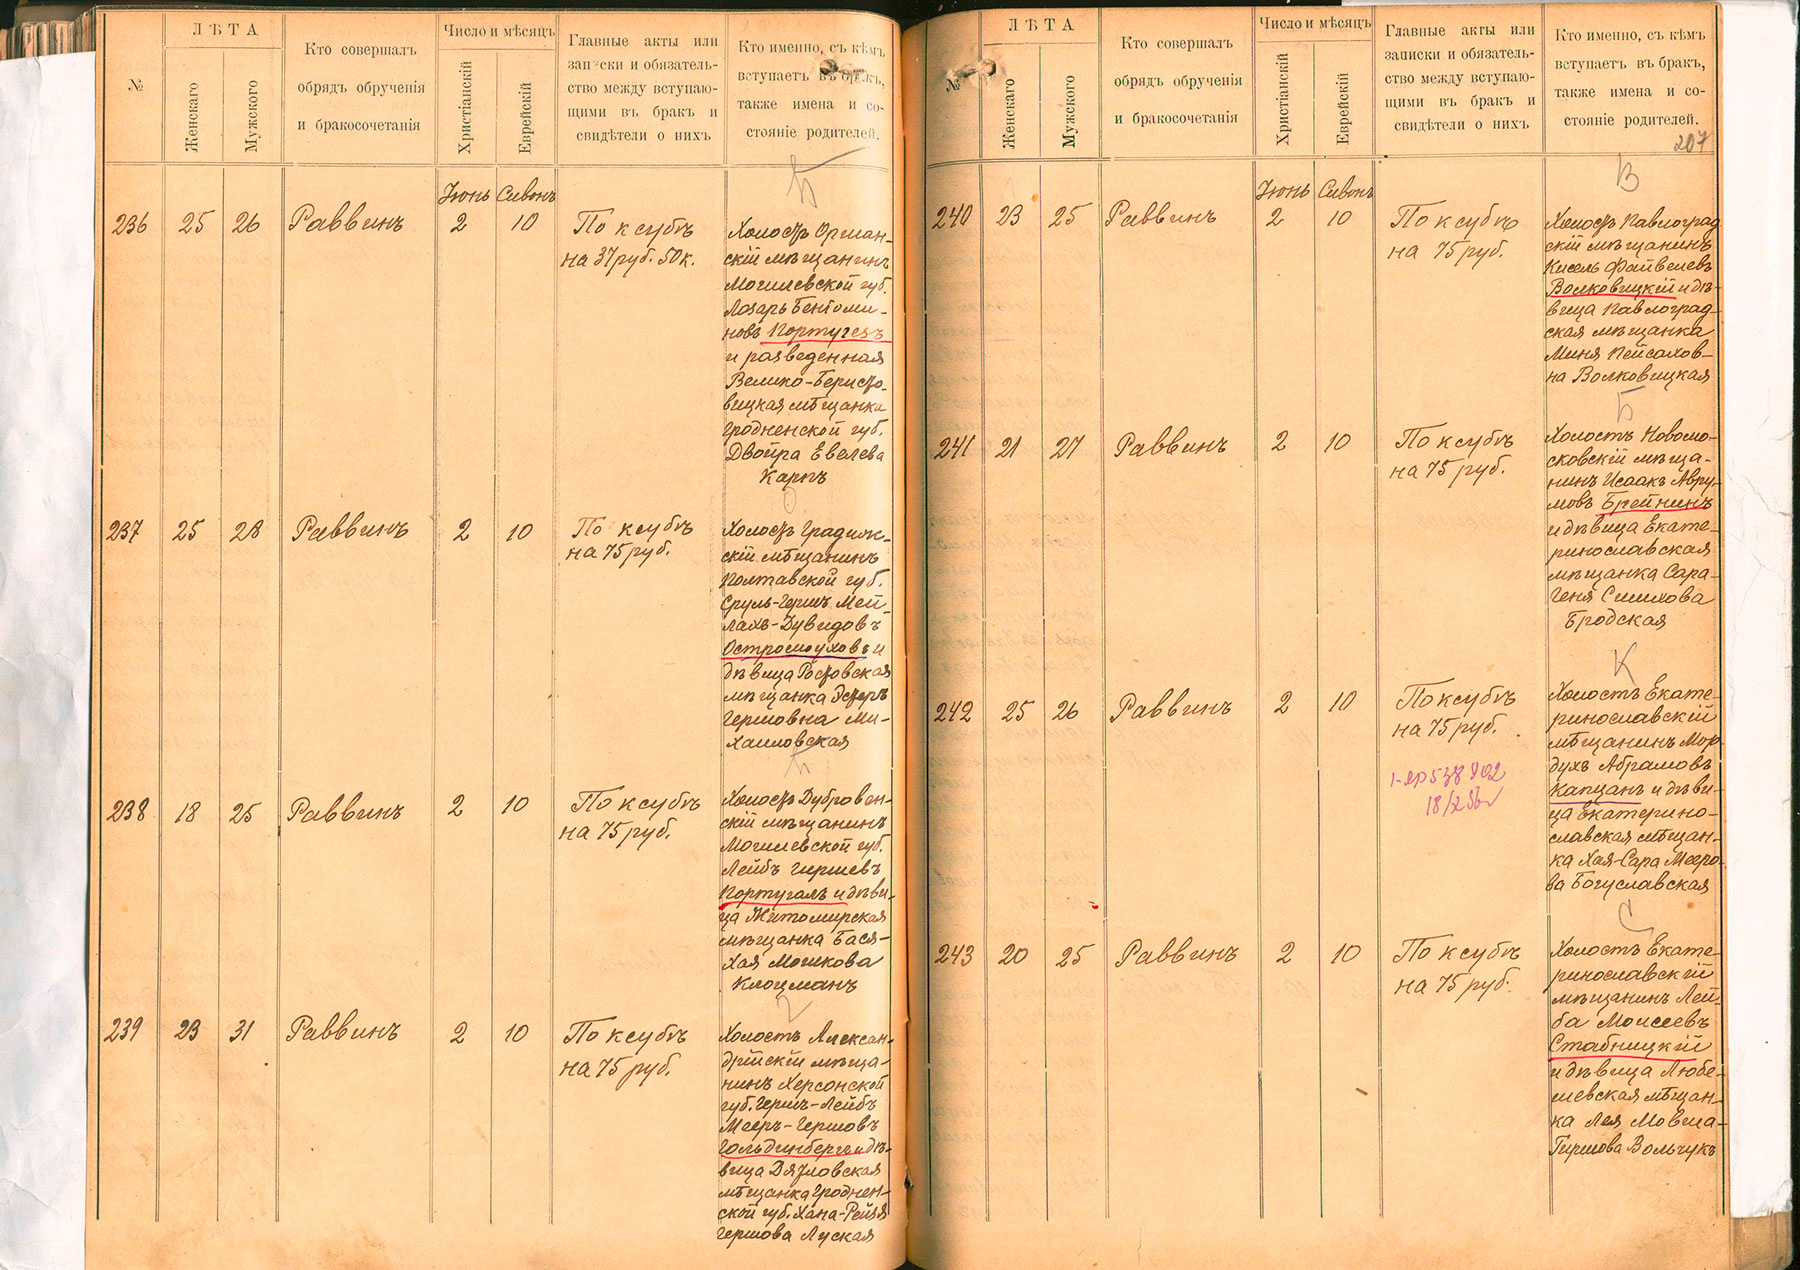 №
ЛѢТА
Женскаго
Мужского
Кто совершалъ
обрядъ обрученія
и бракосочетанія
Число и мѣсяцъ
Христіанскій
Еврейскій
Главные акты или
записки и обязатель-
ство между вступаю-
щими въ бракъ и
свидѣтели о нихъ
Кто именно, съ кѣмъ
вступаетъ въ бракъ,
также имена и со-
стояніе родителей.
Іюнь Сивонъ
236 25 26 Раввинъ 2 10
По ксубѣ
на 37 руб. 50 к.
Холостъ Оршан-
скій мѣщанинъ
Могилевской губ.
Лозарь Беніоми-
новъ Португезъ
и разведенная
Велико-Беристо-
вицкая мѣщанка
Гродненской губ.
Двойра Евелева
Карпъ
237 25 28 Раввинъ 2 10
По ксубѣ
на 75 руб.
Холостъ Градиж-
скій мѣщанинъ
Полтавской губ.
Сруль-Гершъ Мей-
лахъ-Дувидовъ
Остромоуховъ и
дѣвица Ростовская
мѣщанка Эстеръ
Гершовна Ми-
хаиловская
238 18 25 Раввинъ 2 10
По ксубѣ
на 75 руб.
Холостъ Дубровен-
скій мѣщанинъ
Могилевской губ.
Лейбъ Гиршевъ
Португалъ и дѣви-
ца Житомирская
мѣщанка Бася-
Хая Мошкова
Клоцманъ
239 23 31 Раввинъ 2 10
По ксубѣ
на 75 руб.
Холостъ Алексан-
дрійскій мѣща-
нинъ Херсонской
губ. Гершъ-Лейбъ
Мееръ-Гершовъ
Гольдинбергъ и дѣ-
вица Дятловская
мѣщанка Гроднен-
ской губ. Хана-Рейзя
Гершова Луская
№
ЛѢТА
Женскаго
Мужского
Кто совершалъ
обрядъ обрученія
и бракосочетанія
Число и мѣсяцъ
Христіанскій
Еврейскій
Главные акты или
записки и обязатель-
ство между вступаю-
щими въ бракъ и
свидѣтели о нихъ
Кто именно, съ кѣмъ
вступаетъ въ бракъ,
также имена и со-
стояніе родителей.
207
В
Іюнь Сивонъ
240 23 25 Раввинъ 2 10
По ксубѣ
на 75 руб.
Холостъ Павлоград
скій мѣщанинъ
Кисель Файвелевъ
Волковицкій и дѣ-
вица Павлоград-
ская мѣщанка
Миня Пейсахов-
на Волковицкая
Б
241 21 27 Раввинъ 2 10
По ксубѣ
на 75 руб.
Холостъ Новомо-
сковскій мѣща-
нинъ Исаакъ Авру-
мовъ Брейнинъ
и дѣвица Екате-
ринославская
мѣщанка Сара-
Геня Симхова
Бродская
К
242 25 26 Раввинъ 2 10
По ксубѣ
на 75 руб.
Холостъ Екате-
ринославскій
мѣщанинъ Мор-
духъ Абрамовъ
Капцанъ и дѣви-
ца Екатерино-
славская мѣщан-
ка Хая-Сара Мееро-
ва Богуславская
С
243 20 25 Раввинъ 2 10
По ксубѣ
на 75 руб.
Холостъ Екате-
ринославскій
мѣщанинъ Лей-
ба Моисеевъ
Стабницкій
и дѣвица Любе-
шевская мѣщан-
ка Лея Мовша-
Гиршова Вольчукъ